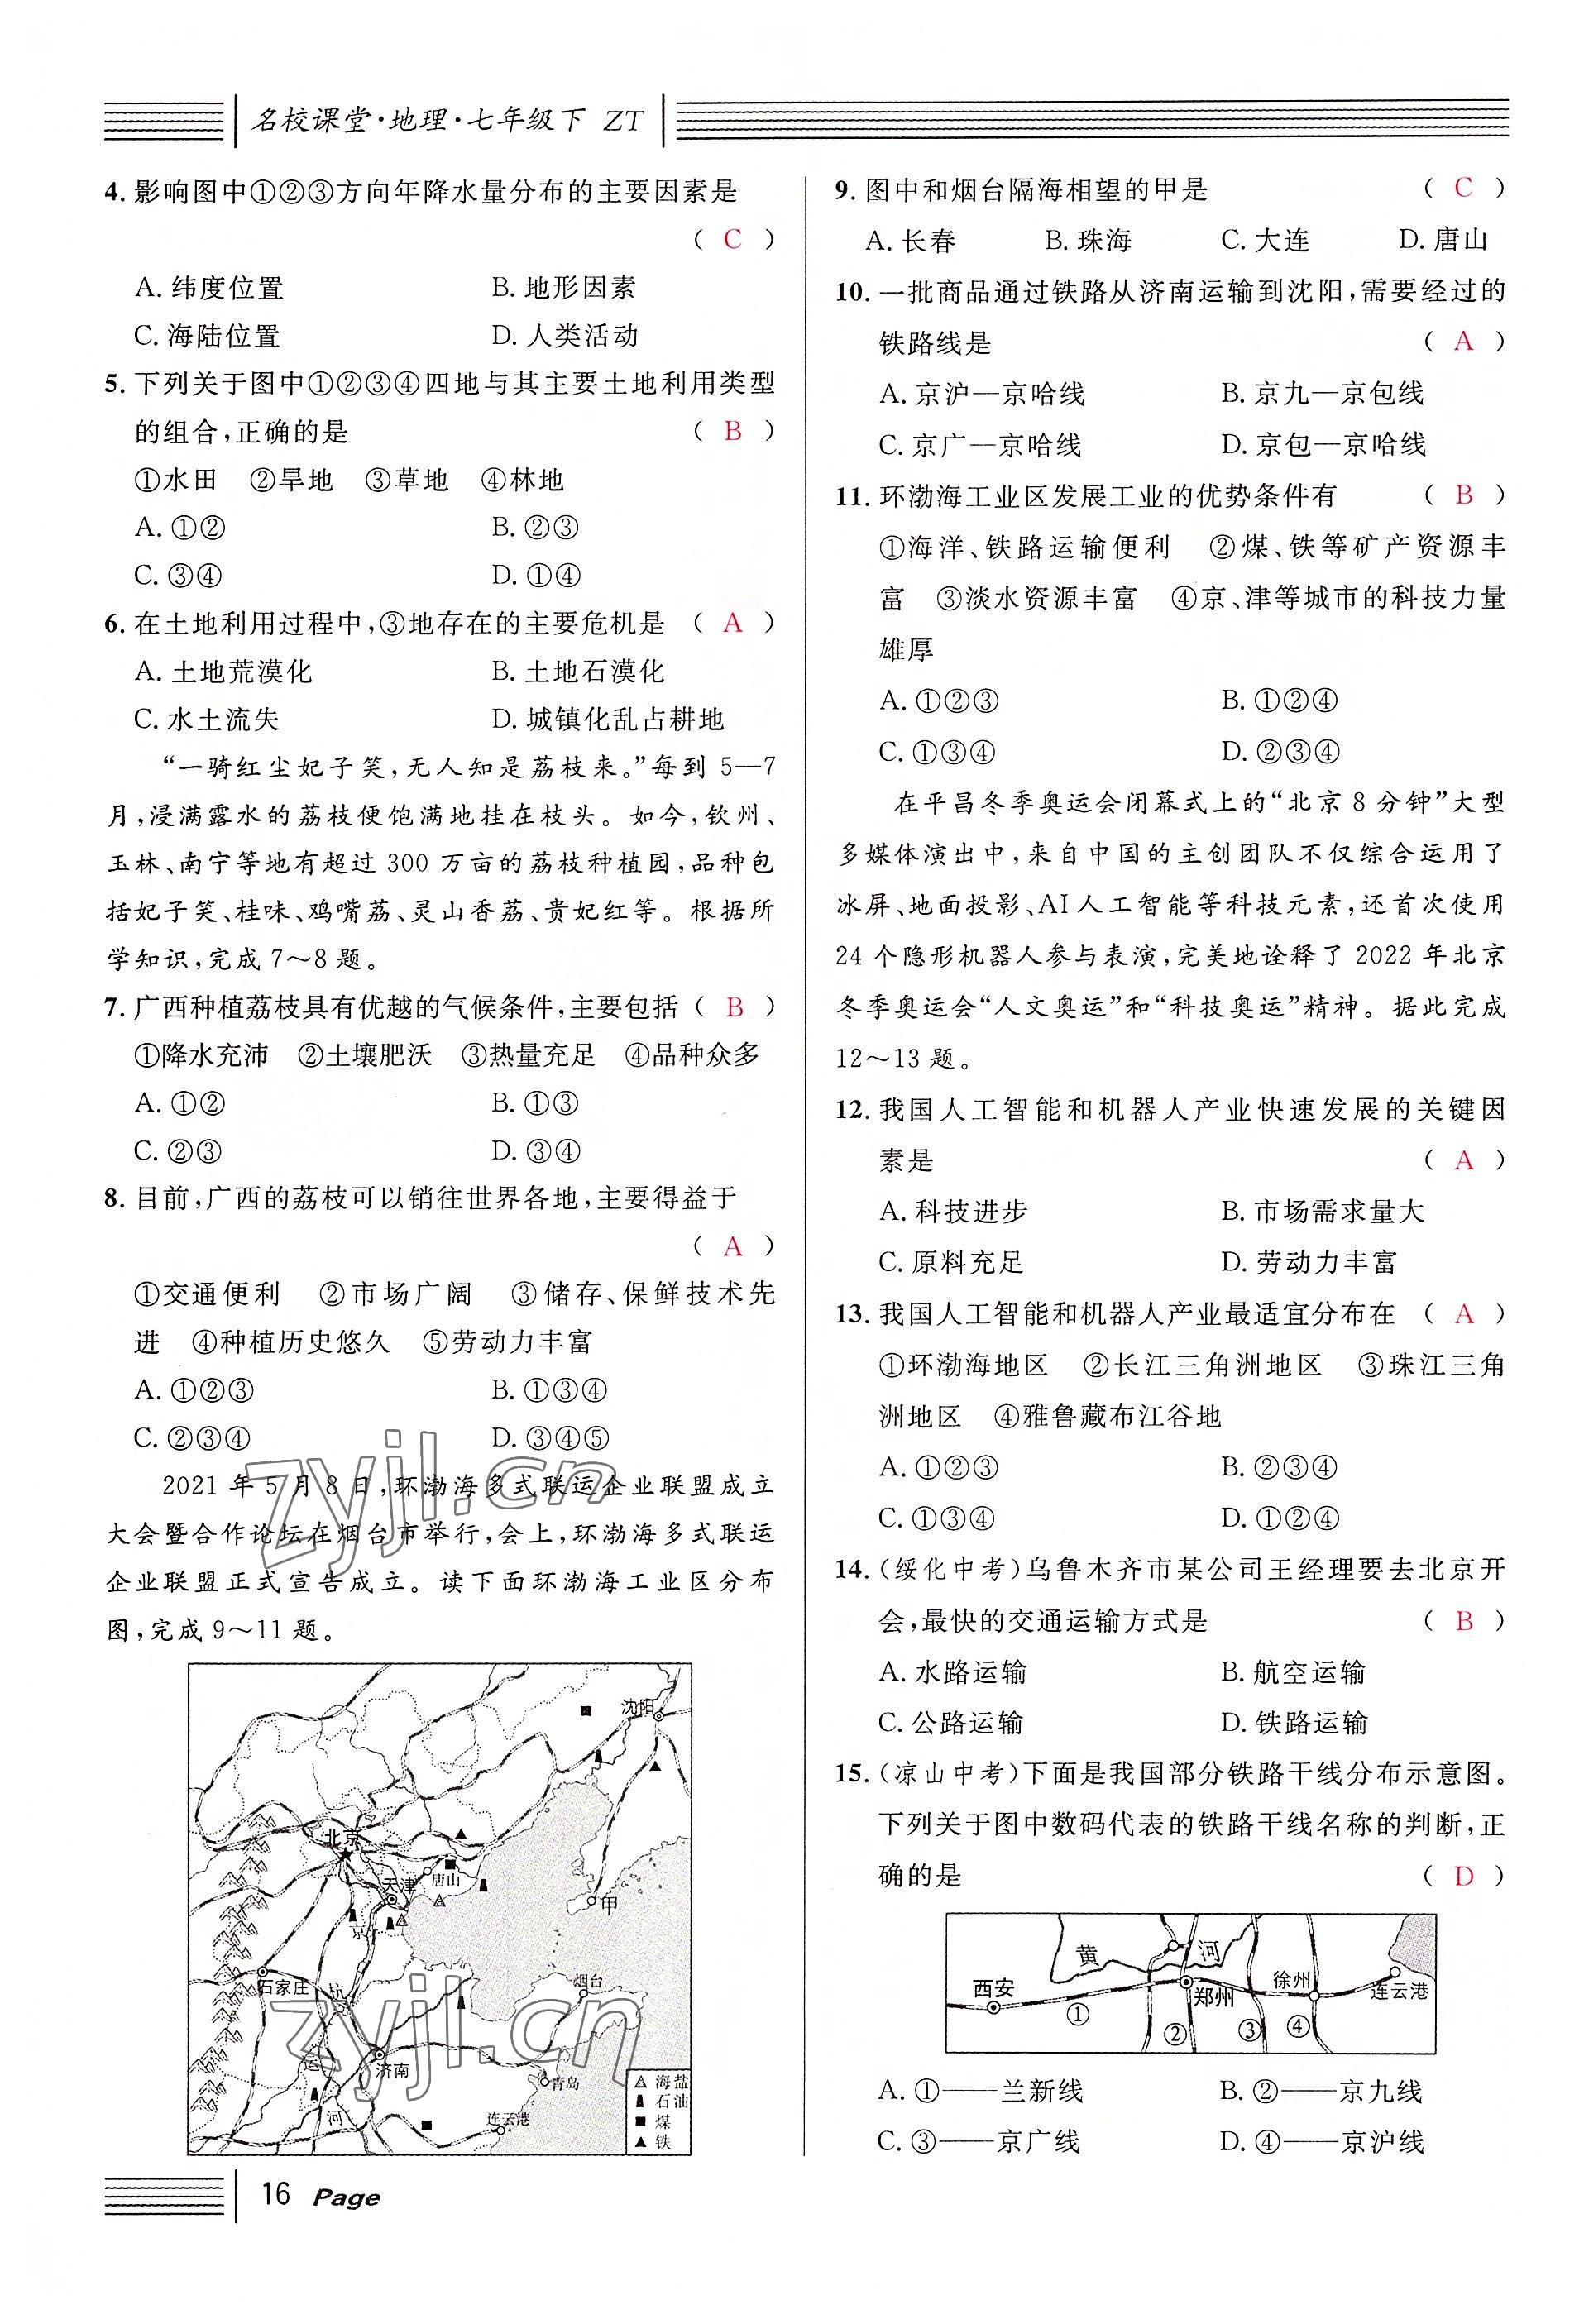 名校课堂·地理·七年级下 ZT
4. 影响图中①②③方向年降水量分布的主要因素是
( C )
A. 纬度位置 B. 地形因素
C. 海陆位置 D. 人类活动
5. 下列关于图中①②③④四地与其主要土地利用类型
的组合,正确的是 ( B )
①水田 ②旱地 ③草地 ④林地
A. ①② B. ②③
C. ③④ D. ①④
6. 在土地利用过程中,③地存在的主要危机是 ( A )
A. 土地荒漠化 B. 土地石漠化
C. 水土流失 D. 城镇化乱占耕地
“一骑红尘妃子笑,无人知是荔枝来。”每到 5—7
月,浸满露水的荔枝便饱满地挂在枝头。如今,钦州、
玉林、南宁等地有超过 300 万亩的荔枝种植园,品种包
括妃子笑、桂味、鸡嘴荔、灵山香荔、贵妃红等。根据所
学知识,完成 7～8 题。
7. 广西种植荔枝具有优越的气候条件,主要包括 ( B )
①降水充沛 ②土壤肥沃 ③热量充足 ④品种众多
A. ①② B. ①③
C. ②③ D. ③④
8. 目前,广西的荔枝可以销往世界各地,主要得益于
( A )
①交通便利 ②市场广阔 ③储存、保鲜技术先
进 ④种植历史悠久 ⑤劳动力丰富
A. ①②③ B. ①③④
C. ②③④ D. ③④⑤
2021 年 5 月 8 日,环渤海多式联运企业联盟成立
大会暨合作论坛在烟台市举行,会上,环渤海多式联运
企业联盟正式宣告成立。读下面环渤海工业区分布
图,完成 9～11 题。
沈阳
北京
唐山
天津
甲
京
石家庄
杭
烟台
运
济南
青岛
河
连云港
海盐
石油
煤
铁
zyjl.cn
zyjl.cn
16 Page
9. 图中和烟台隔海相望的甲是 ( C )
A. 长春 B. 珠海 C. 大连 D. 唐山
10. 一批商品通过铁路从济南运输到沈阳,需要经过的
铁路线是 ( A )
A. 京沪—京哈线 B. 京九—京包线
C. 京广—京哈线 D. 京包—京哈线
11. 环渤海工业区发展工业的优势条件有 ( B )
①海洋、铁路运输便利 ②煤、铁等矿产资源丰
富 ③淡水资源丰富 ④京、津等城市的科技力量
雄厚
A. ①②③ B. ①②④
C. ①③④ D. ②③④
在平昌冬季奥运会闭幕式上的“北京 8 分钟”大型
多媒体演出中,来自中国的主创团队不仅综合运用了
冰屏、地面投影、AI 人工智能等科技元素,还首次使用
24 个隐形机器人参与表演,完美地诠释了 2022 年北京
冬季奥运会“人文奥运”和“科技奥运”精神。据此完成
12～13 题。
12. 我国人工智能和机器人产业快速发展的关键因
素是 ( A )
A. 科技进步 B. 市场需求量大
C. 原料充足 D. 劳动力丰富
13. 我国人工智能和机器人产业最适宜分布在 ( A )
①环渤海地区 ②长江三角洲地区 ③珠江三角
洲地区 ④雅鲁藏布江谷地
A. ①②③ B. ②③④
C. ①③④ D. ①②④
14. (绥化中考)乌鲁木齐市某公司王经理要去北京开
会,最快的交通运输方式是 ( B )
A. 水路运输 B. 航空运输
C. 公路运输 D. 铁路运输
15. (凉山中考)下面是我国部分铁路干线分布示意图。
下列关于图中数码代表的铁路干线名称的判断,正
确的是 ( D )
黄 河
西安 郑州 徐州 连云港
① ② ③ ④
A. ①——兰新线 B. ②——京九线
C. ③——京广线 D. ④——京沪线